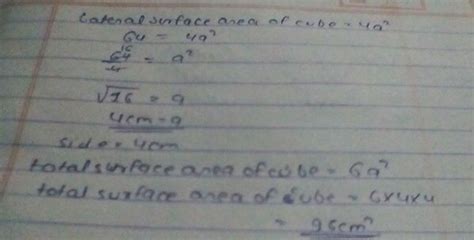 Lateral surface area of cube = 4a²
64 = 4a²
64/4 16 = a²
√16 = a
4cm = a
side = 4cm
total surface area of cube = 6a²
total surface area of cube = 6x4x4
= 96cm²